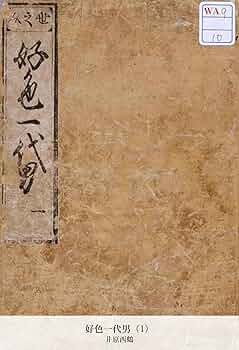 好色一代男 一
WA9
10
好色一代男 (1)
井原西鶴